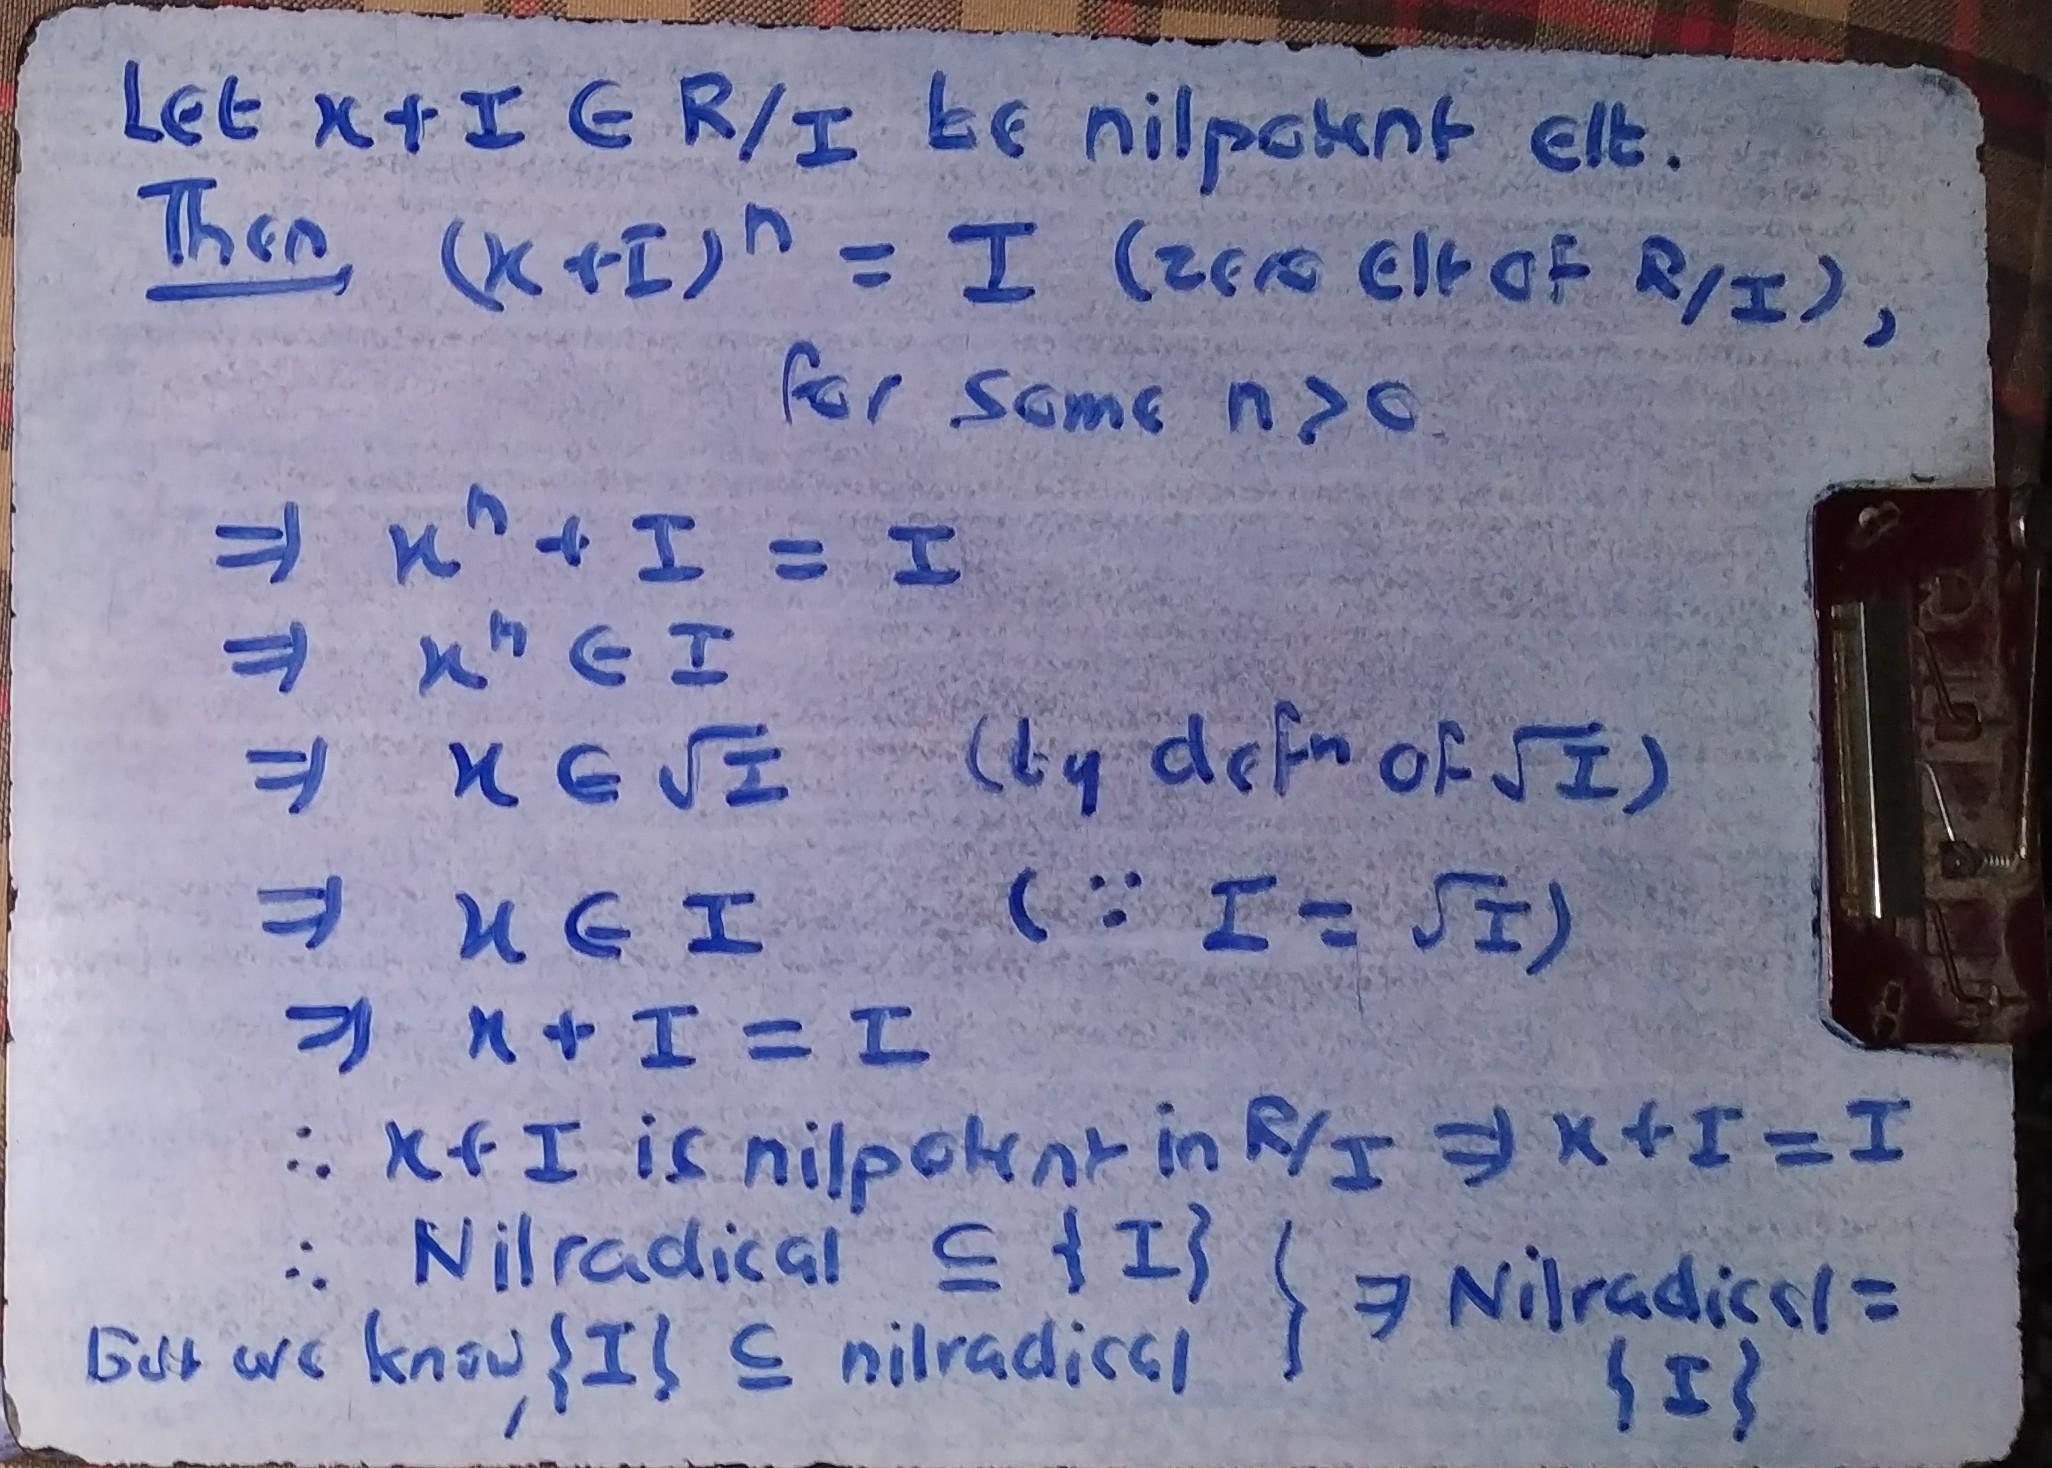 Let x+I ∈ R/I be nilpotent elt.
Then, (x+I)ⁿ = I (zero elt of R/I),
for some n>0.
⇒ xⁿ + I = I
⇒ xⁿ ∈ I
⇒ x ∈ √I (by defⁿ of √I)
⇒ x ∈ I (∵ I = √I)
⇒ x + I = I
∴ x+I is nilpotent in R/I ⇒ x+I = I
∴ Nilradical ⊆ {I} } ⇒ Nilradical =
But we know, {I} ⊆ nilradical {I}